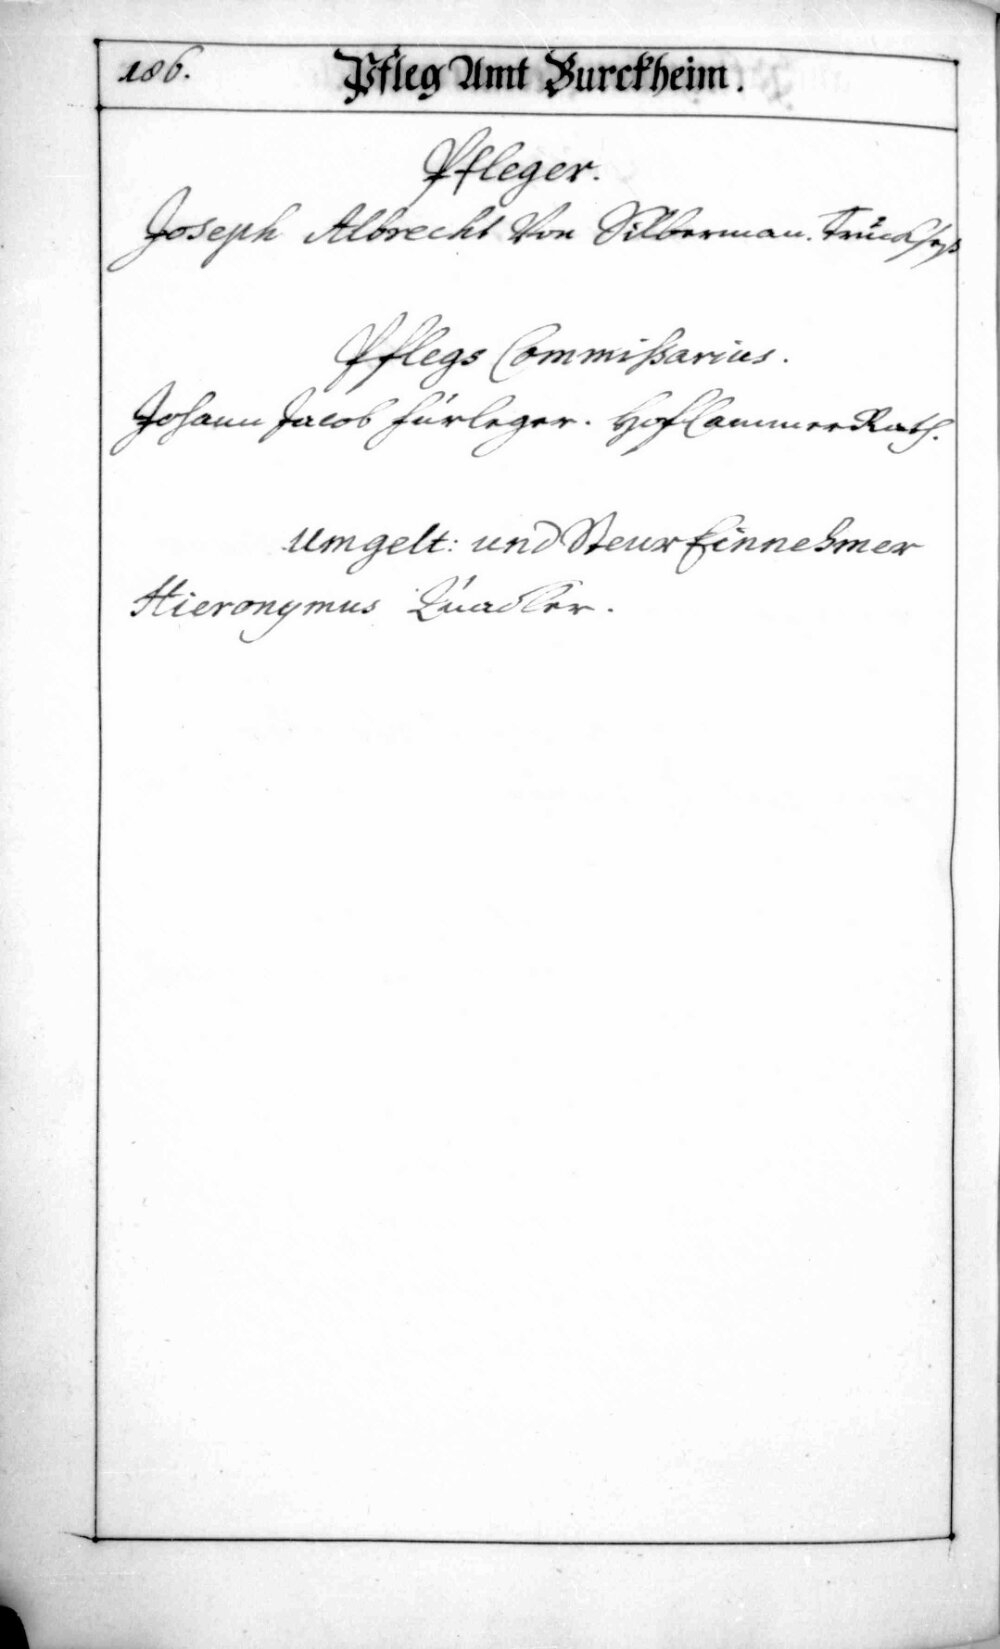 186. Pfleg Amt Burckheim.
Pfleger.
Joseph Albrecht Von Silberman. Truchseß
Pflegs Commißarius.
Johann Jacob Fürleger. Hof Cammer Rath.
Umgelt: und Steur Einnehmer
Hieronymus